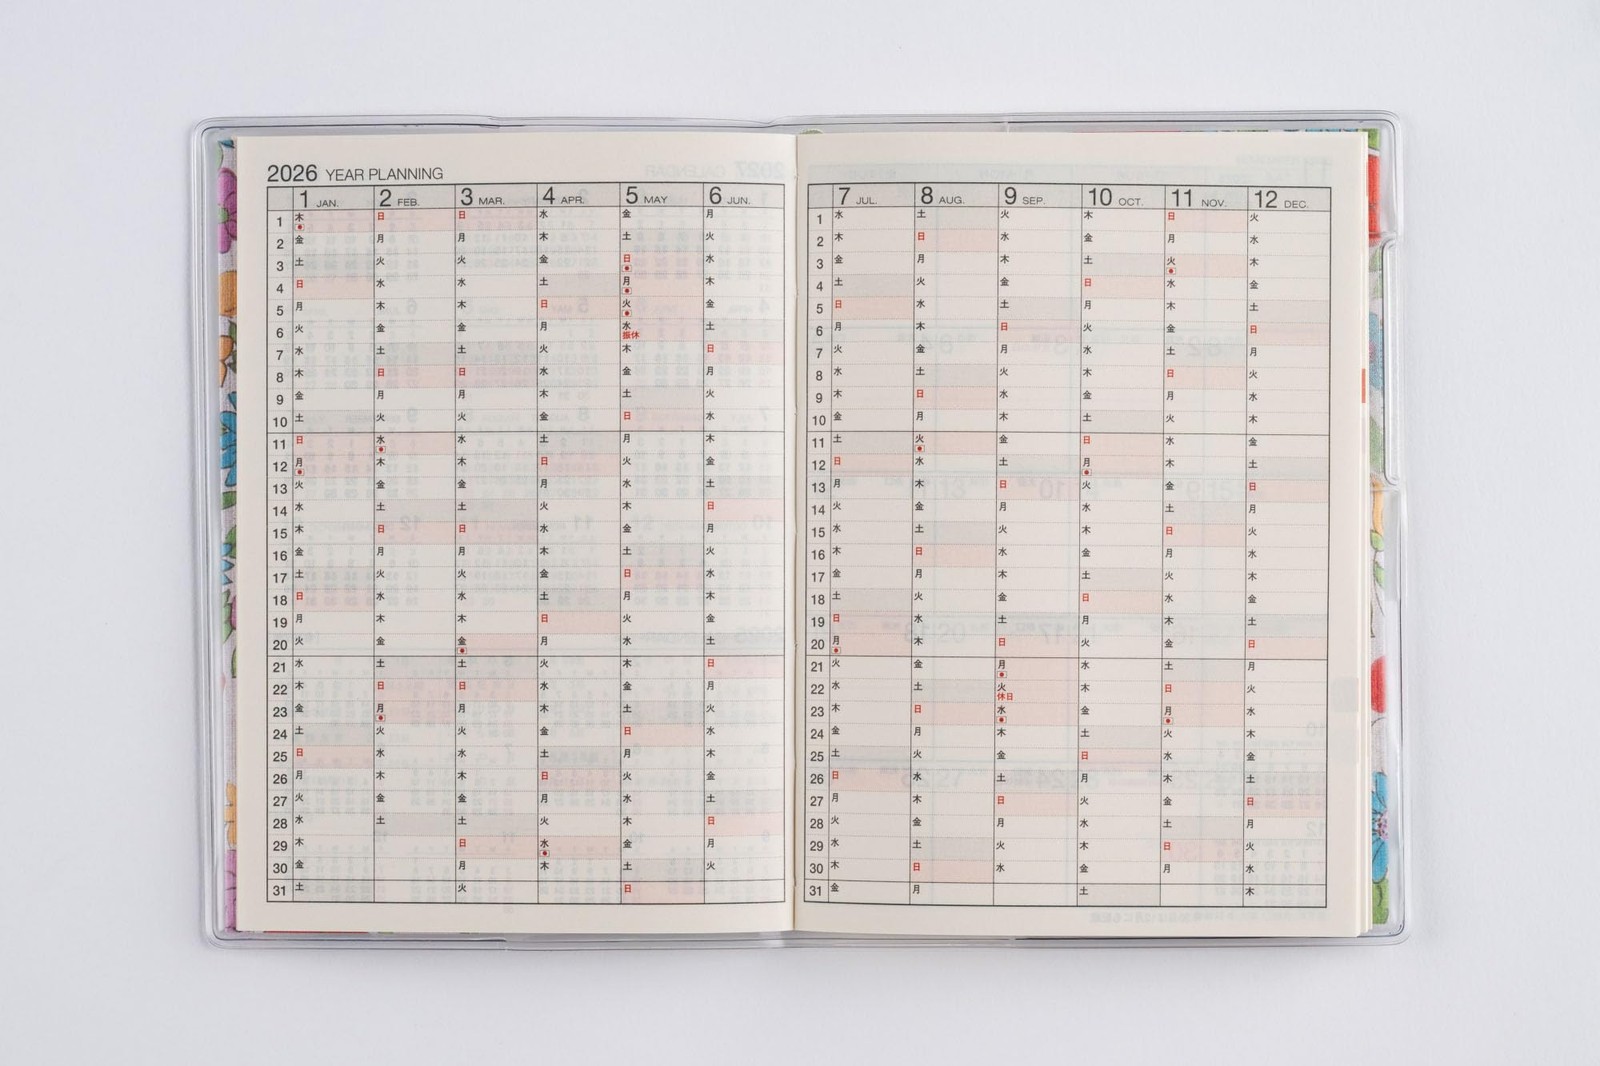 2026 YEAR PLANNING
1 JAN. 2 FEB. 3 MAR. 4 APR. 5 MAY 6 JUN.
1 木 日 日 水 金 月
2 金 月 月 木 土 火
3 土 火 火 金 日 水
4 日 水 水 土 月 木
5 月 木 木 日 火 金
6 火 金 金 月 水 振休 土
7 水 土 土 火 木 日
8 木 日 日 水 金 月
9 金 月 月 木 土 火
10 土 火 火 金 日 水
11 日 水 水 土 月 木
12 月 木 木 日 火 金
13 火 金 金 月 水 土
14 水 土 土 火 木 日
15 木 日 日 水 金 月
16 金 月 月 木 土 火
17 土 火 火 金 日 水
18 日 水 水 土 月 木
19 月 木 木 日 火 金
20 火 金 金 月 水 土
21 水 土 土 火 木 日
22 木 日 日 水 金 月
23 金 月 月 木 土 火
24 土 火 火 金 日 水
25 日 水 水 土 月 木
26 月 木 木 日 火 金
27 火 金 金 月 水 土
28 水 土 土 火 木 日
29 木 日 水 金 月
30 金 月 木 土 火
31 土 火 日
7 JUL. 8 AUG. 9 SEP. 10 OCT. 11 NOV. 12 DEC.
1 水 土 火 木 日 火
2 木 日 水 金 月 水
3 金 月 木 土 火 木
4 土 火 金 日 水 金
5 日 水 土 月 木 土
6 月 木 日 火 金 日
7 火 金 月 水 土 月
8 水 土 火 木 日 火
9 木 日 水 金 月 水
10 金 月 木 土 火 木
11 土 火 金 日 水 金
12 日 水 土 月 木 土
13 月 木 日 火 金 日
14 火 金 月 水 土 月
15 水 土 火 木 日 火
16 木 日 水 金 月 水
17 金 月 木 土 火 木
18 土 火 金 日 水 金
19 日 水 土 月 木 土
20 月 木 日 火 金 日
21 火 金 月 水 土 月
22 水 土 火 休日 木 日 火
23 木 日 水 金 月 水
24 金 月 木 土 火 木
25 土 火 金 日 水 金
26 日 水 土 月 木 土
27 月 木 日 火 金 日
28 火 金 月 水 土 月
29 水 土 火 木 日 火
30 木 日 水 金 月 水
31 金 月 土 木